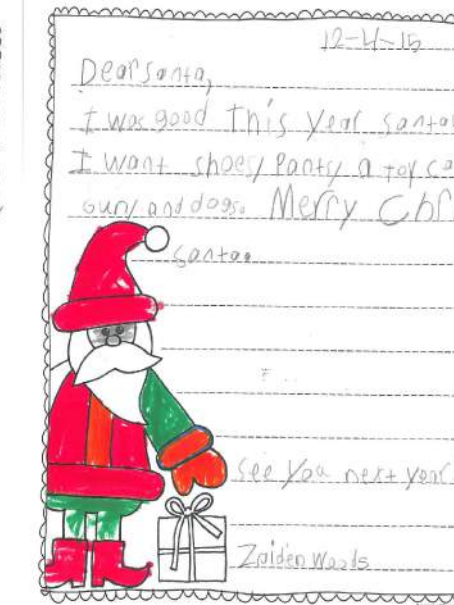 12-4-15
Dear santa,
I was good This Year santa
I want shoes, Pants, a toy ca
guns and dogs. Merry Chr
santa.
see you next year.
Zaiden Woods